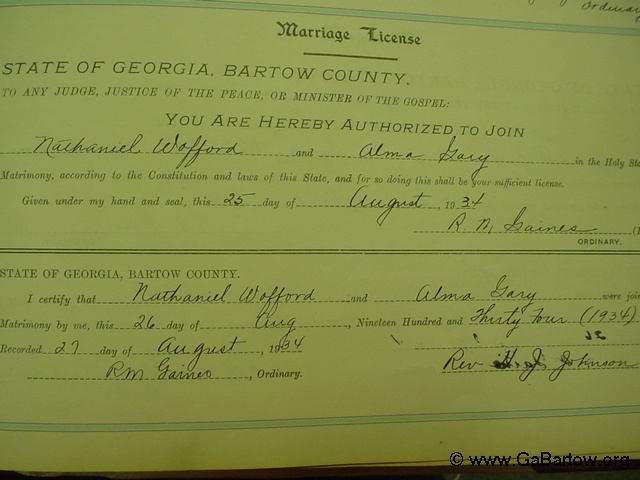 Ordinary
Marriage License
STATE OF GEORGIA, BARTOW COUNTY.
TO ANY JUDGE, JUSTICE OF THE PEACE, OR MINISTER OF THE GOSPEL:
YOU ARE HEREBY AUTHORIZED TO JOIN
Nathaniel Wofford and Alma Gary in the Holy Sta
Matrimony, according to the Constitution and laws of this State, and for so doing this shall be your sufficient license.
Given under my hand and seal, this 25 day of August, 1934
R. M. Gaines (L
ORDINARY.
STATE OF GEORGIA, BARTOW COUNTY.
I certify that Nathaniel Wofford and Alma Gary were join
Matrimony by me, this 26 day of Aug, Nineteen Hundred and Thirty Four (1934)
Recorded 27 day of August, 1934
Rev J. Johnson
RM Gaines, Ordinary.
© www.GaBartow.org